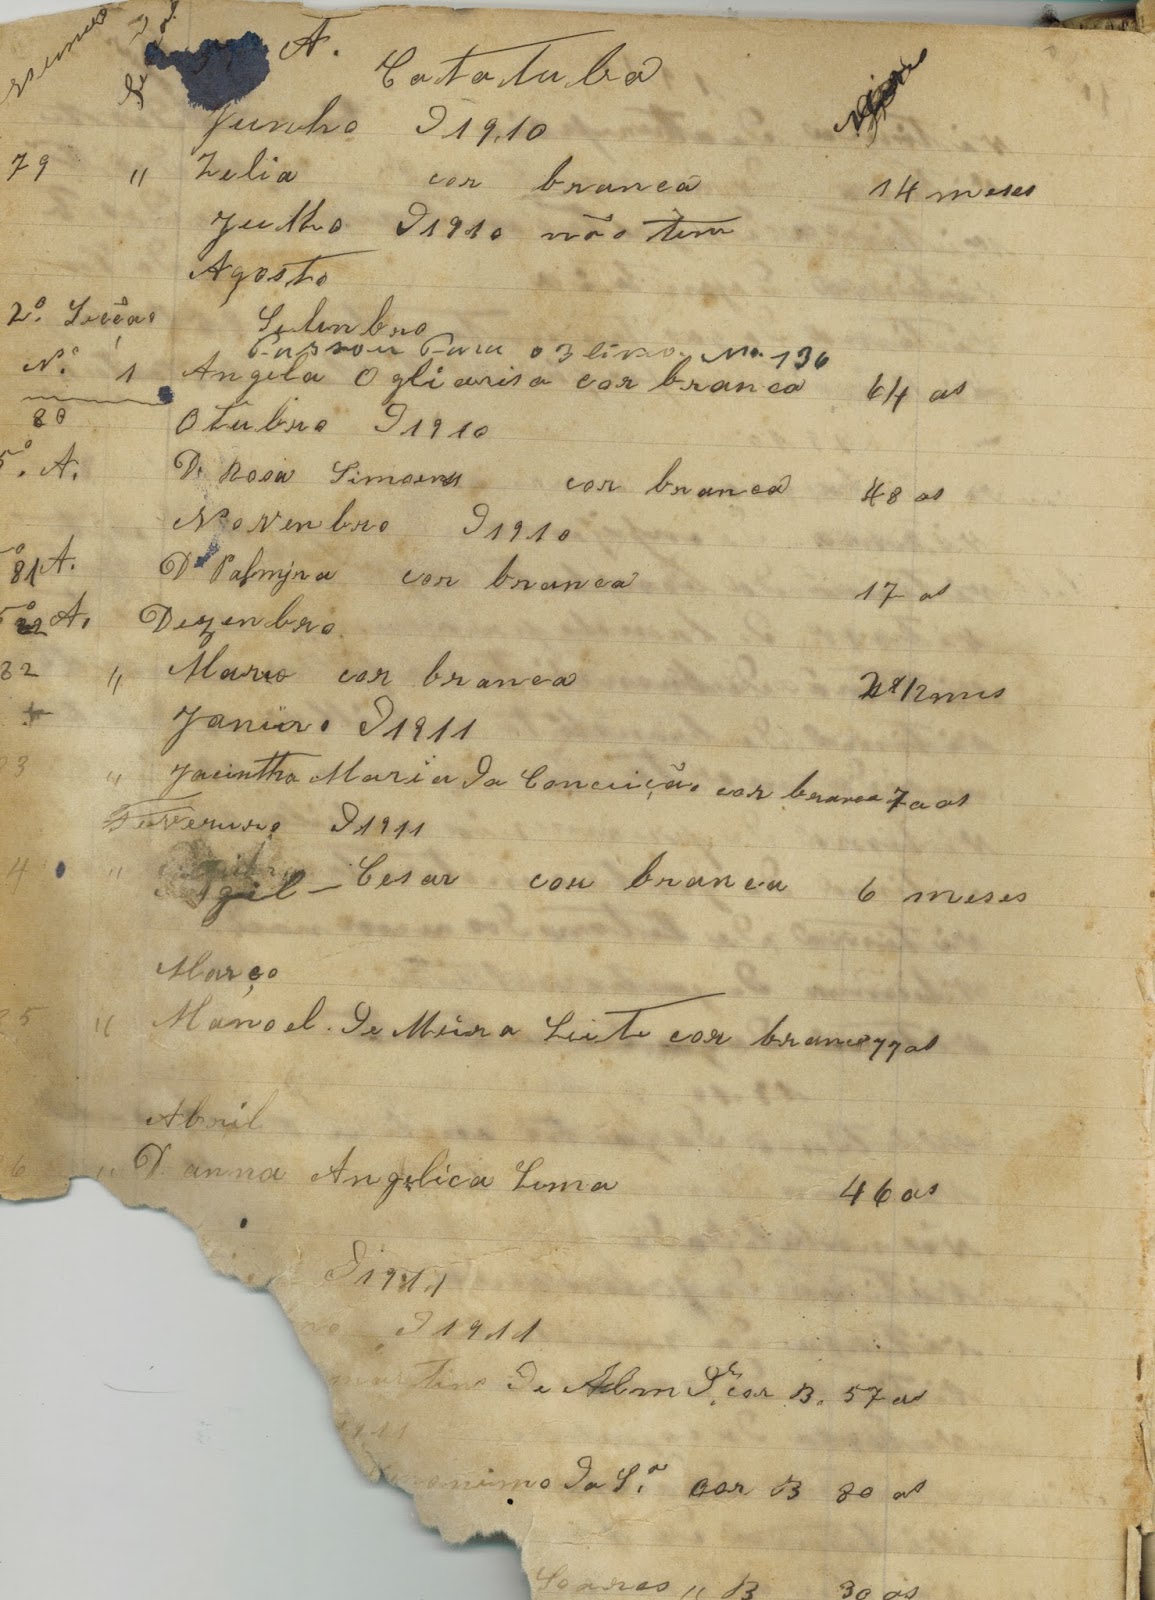 A.
Catatuba
Junho D 1910
79 " Zelia cor branca 14 meses
Julho D 1910 não tem
Agosto
2º. Secção Setenbro
Passou Para o 3 livro. No. 136
Nº. 1 Angela Ogliarisa cor branca 64 as
80 Otubro D 1910
5º. A. D. Rosa Simoens cor branca 48 as
Novenbro D 1910
81 A. Dª Palmjra cor branca 17 as
5º A. Dezenbro
82 " Mario cor branca mes
Janeiro D 1911
3 " Jacintha Maria Da Conceição cor branca 70 as
Feverero D 1911
4 " gil - Cesar cor branca 6 meses
Março
25 " Manoel. De Meira Leite cor branco 77 as
Abril
6 " D. anna Angelica Lema 46 as
D 1911
D 1911
martins De Alm Dr. cor B. 57 as
1911
onimo Da Sª. cor B 80 as
Soares " B 30 as